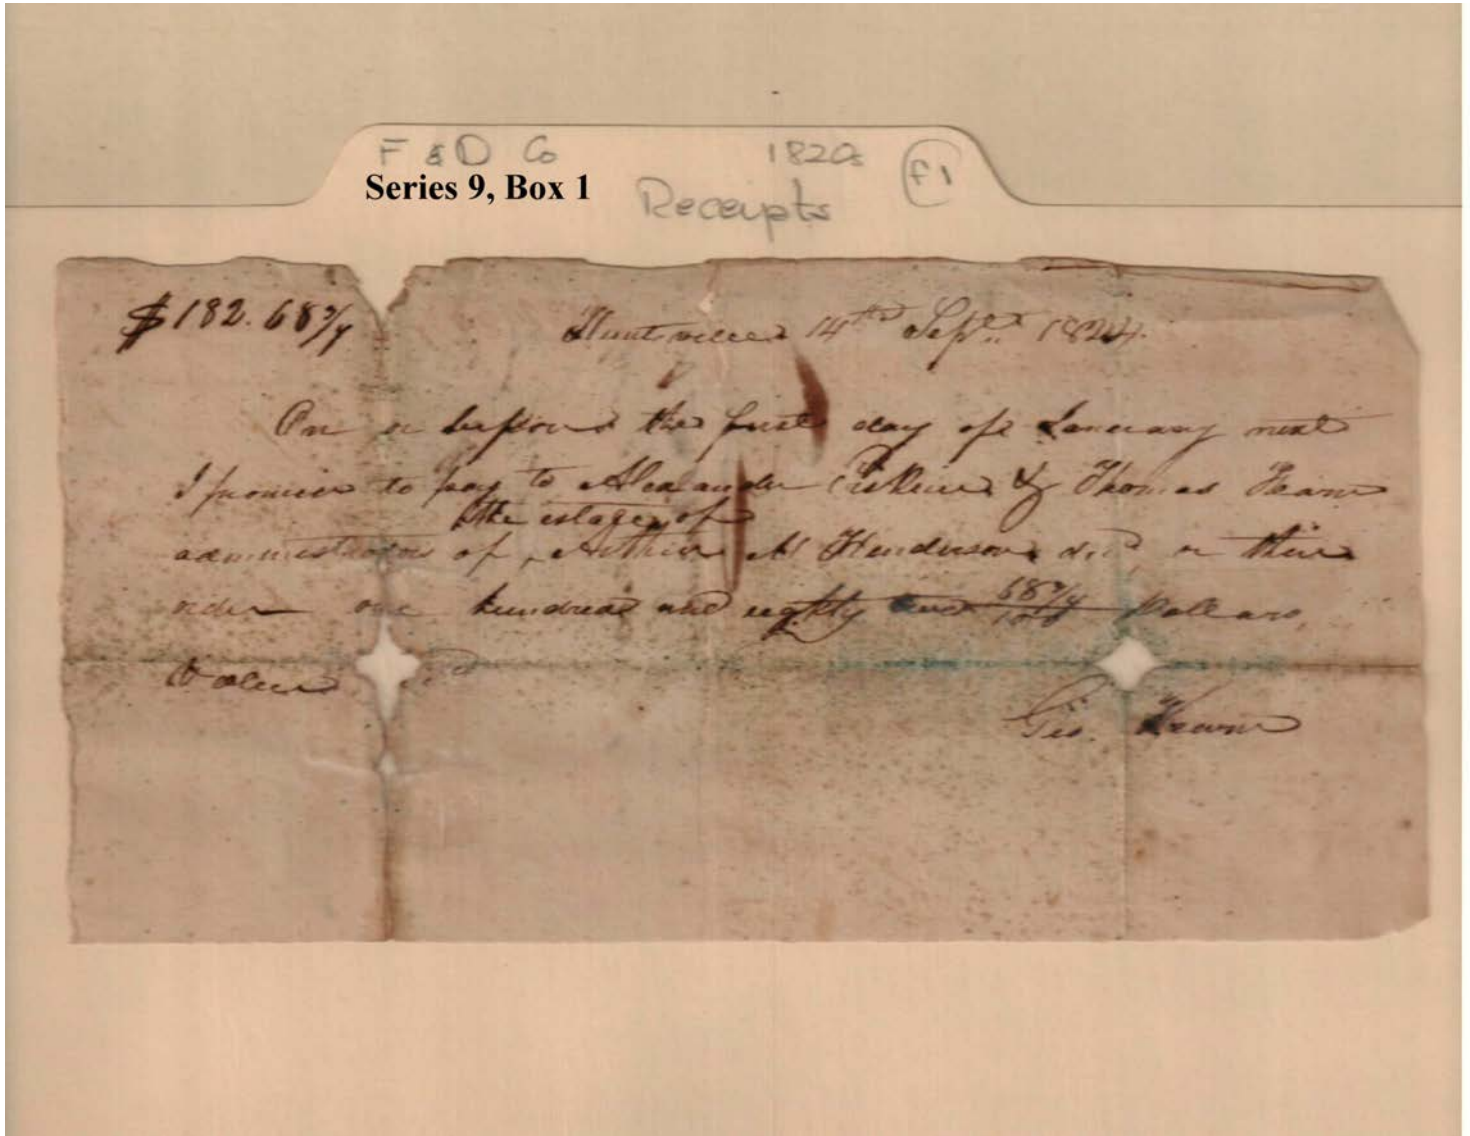 F & D Co 1820s F1
Series 9, Box 1
Receipts
$182.68 3/4
Huntsville 14th Sept. 1824.
On or before the first day of January next
I promise to pay to Alexander Erskine & Thomas Fearn
the estate of
administrators of Arthur M Henderson decd or their
order one hundred and eighty two 68 3/4/100 Dollars,
Value
Geo. Fearn